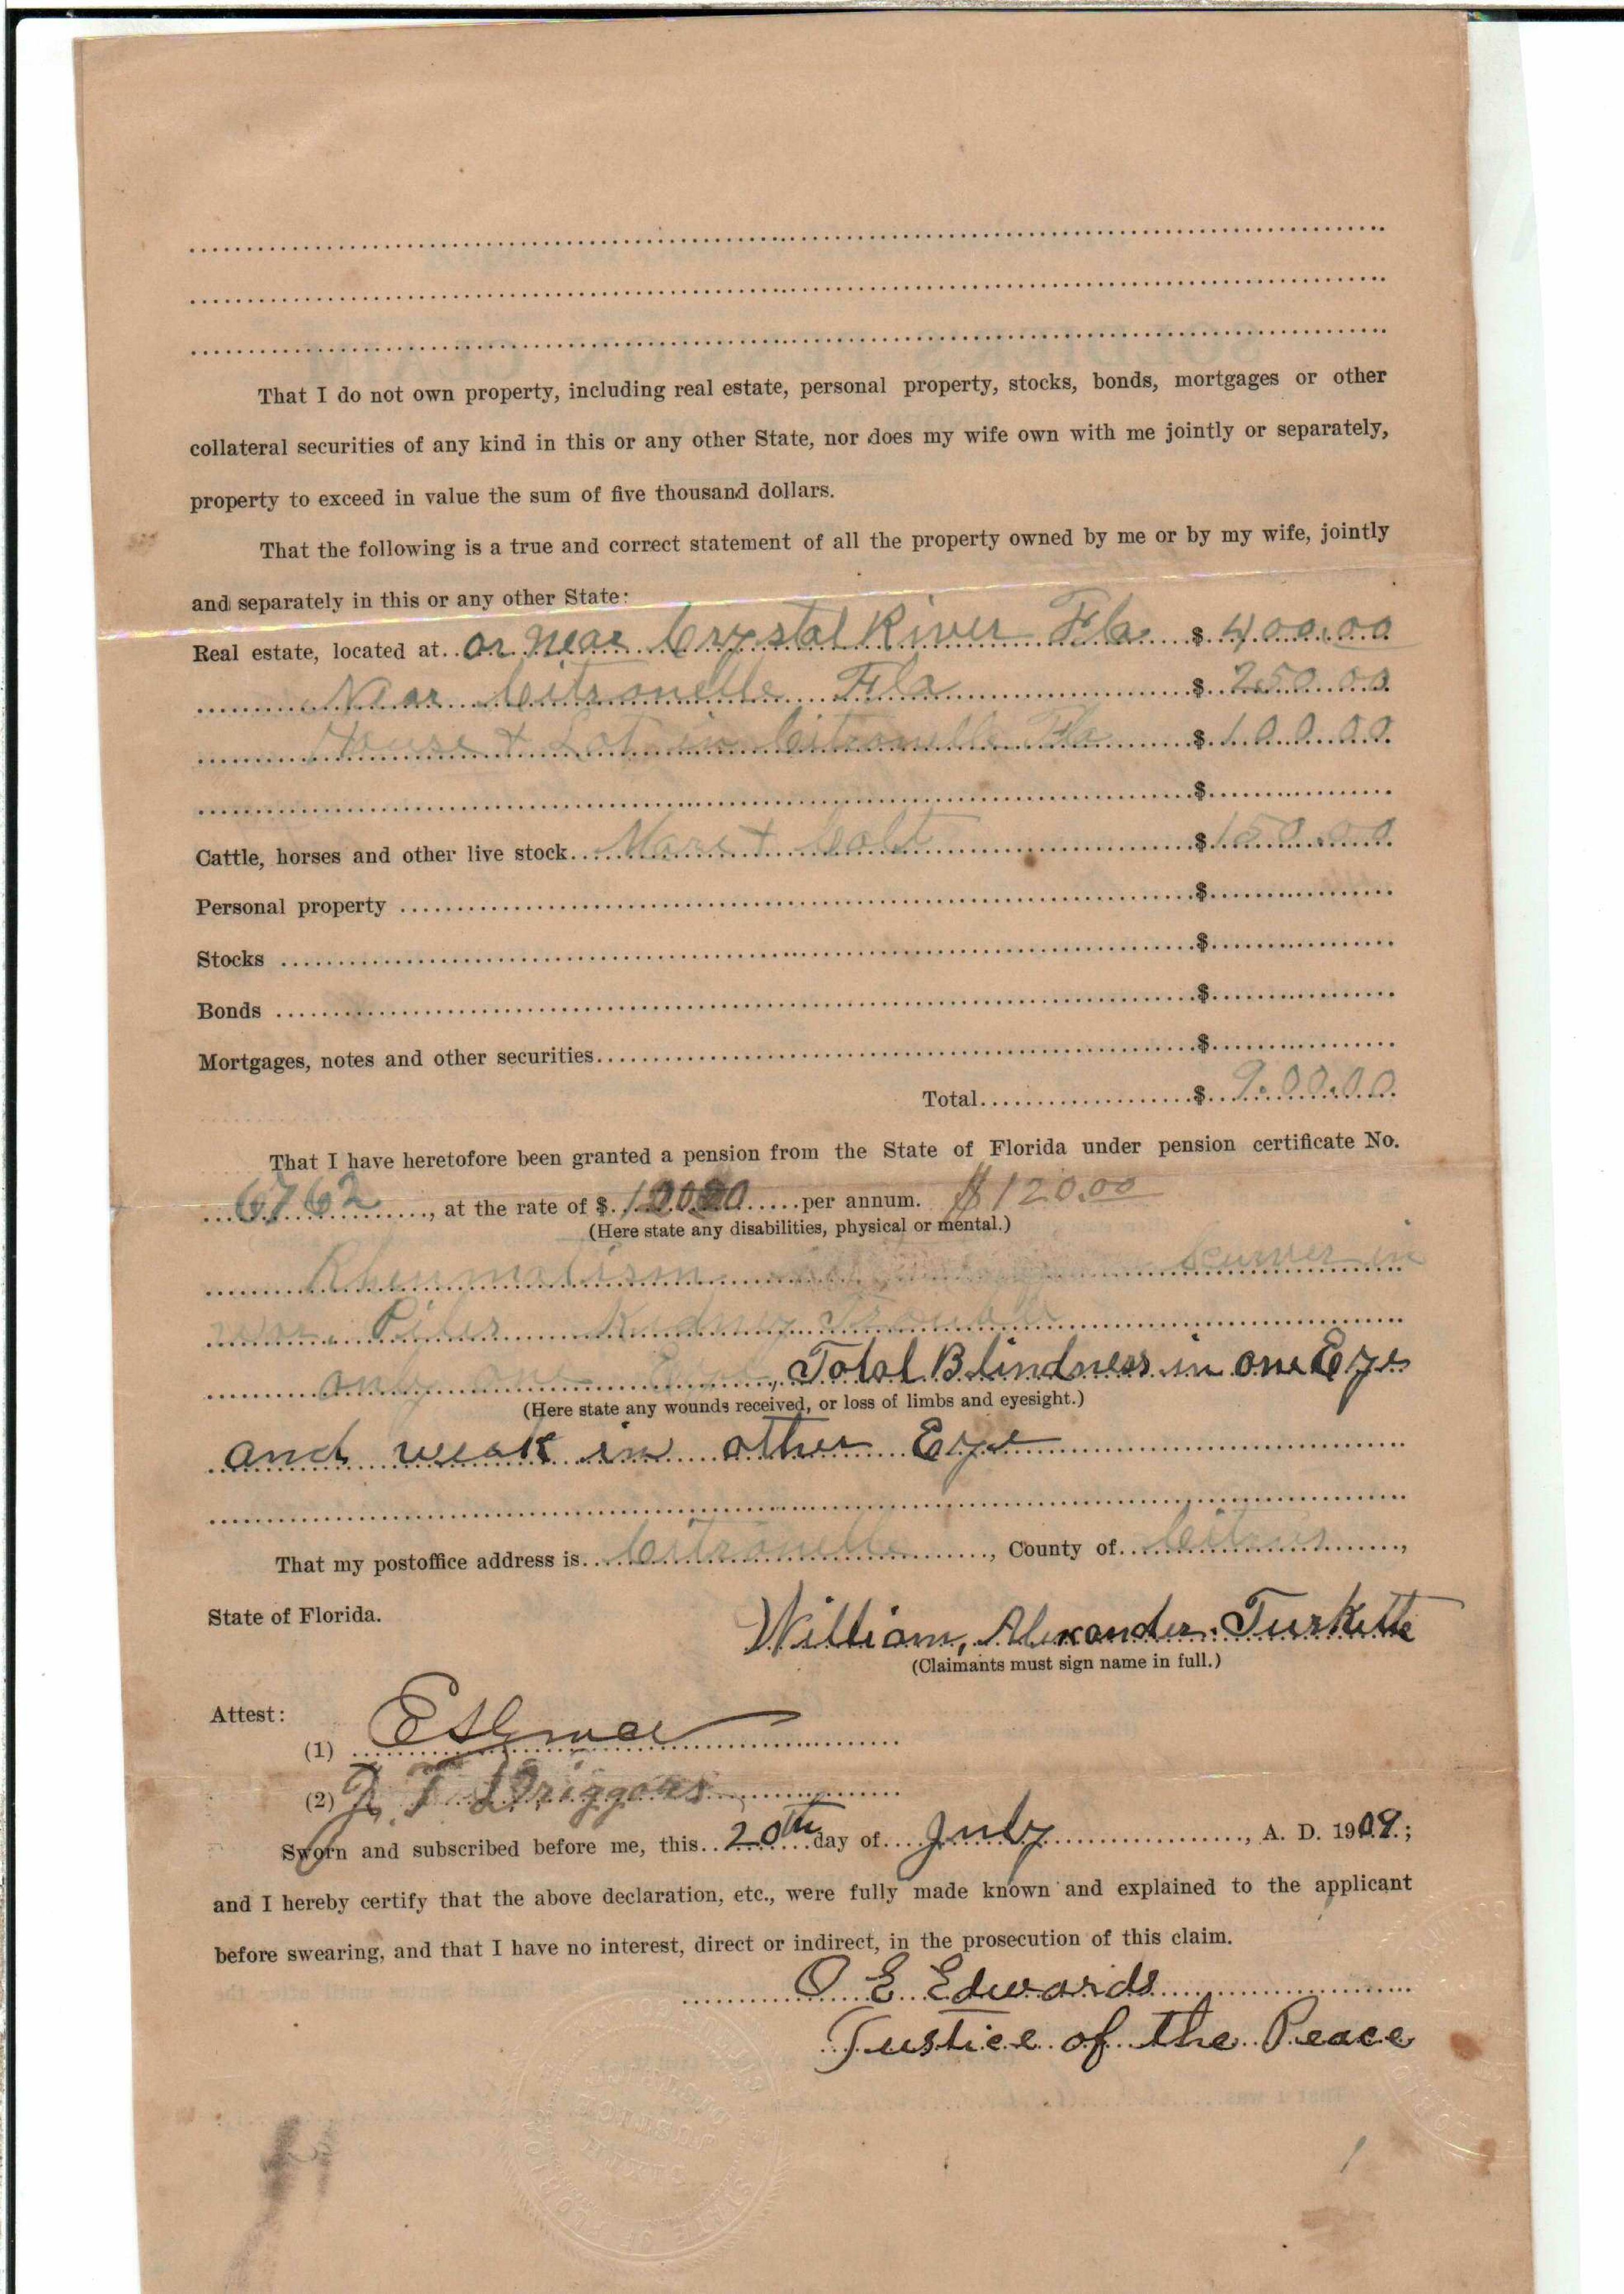 That I do not own property, including real estate, personal property, stocks, bonds, mortgages or other
collateral securities of any kind in this or any other State, nor does my wife own with me jointly or separately,
property to exceed in value the sum of five thousand dollars.
That the following is a true and correct statement of all the property owned by me or by my wife, jointly
and separately in this or any other State:
Real estate, located at or near Crystal River Fla $ 400.00
Near Citronelle Fla $ 250.00
House & Lot in Citronelle Fla $ 100.00
$
Cattle, horses and other live stock Mare & Colt $ 150.00
Personal property $
Stocks $
Bonds $
Mortgages, notes and other securities $
Total $ 900.00
That I have heretofore been granted a pension from the State of Florida under pension certificate No.
6762, at the rate of $ 120.00 per annum. $120.00
(Here state any disabilities, physical or mental.)
Rheumatism in
war Piles Kidney Trouble
only one Total Blindness in one Eye
(Here state any wounds received, or loss of limbs and eyesight.)
and weak in other Eye
That my postoffice address is Citronelle, County of Citrus,
State of Florida.
William, Alexander Turkette
(Claimants must sign name in full.)
Attest:
(1)
(2) J. F. Driggors
Sworn and subscribed before me, this 20th day of July, A. D. 1909.;
and I hereby certify that the above declaration, etc., were fully made known and explained to the applicant
before swearing, and that I have no interest, direct or indirect, in the prosecution of this claim.
O E Edwards
Justice of the Peace